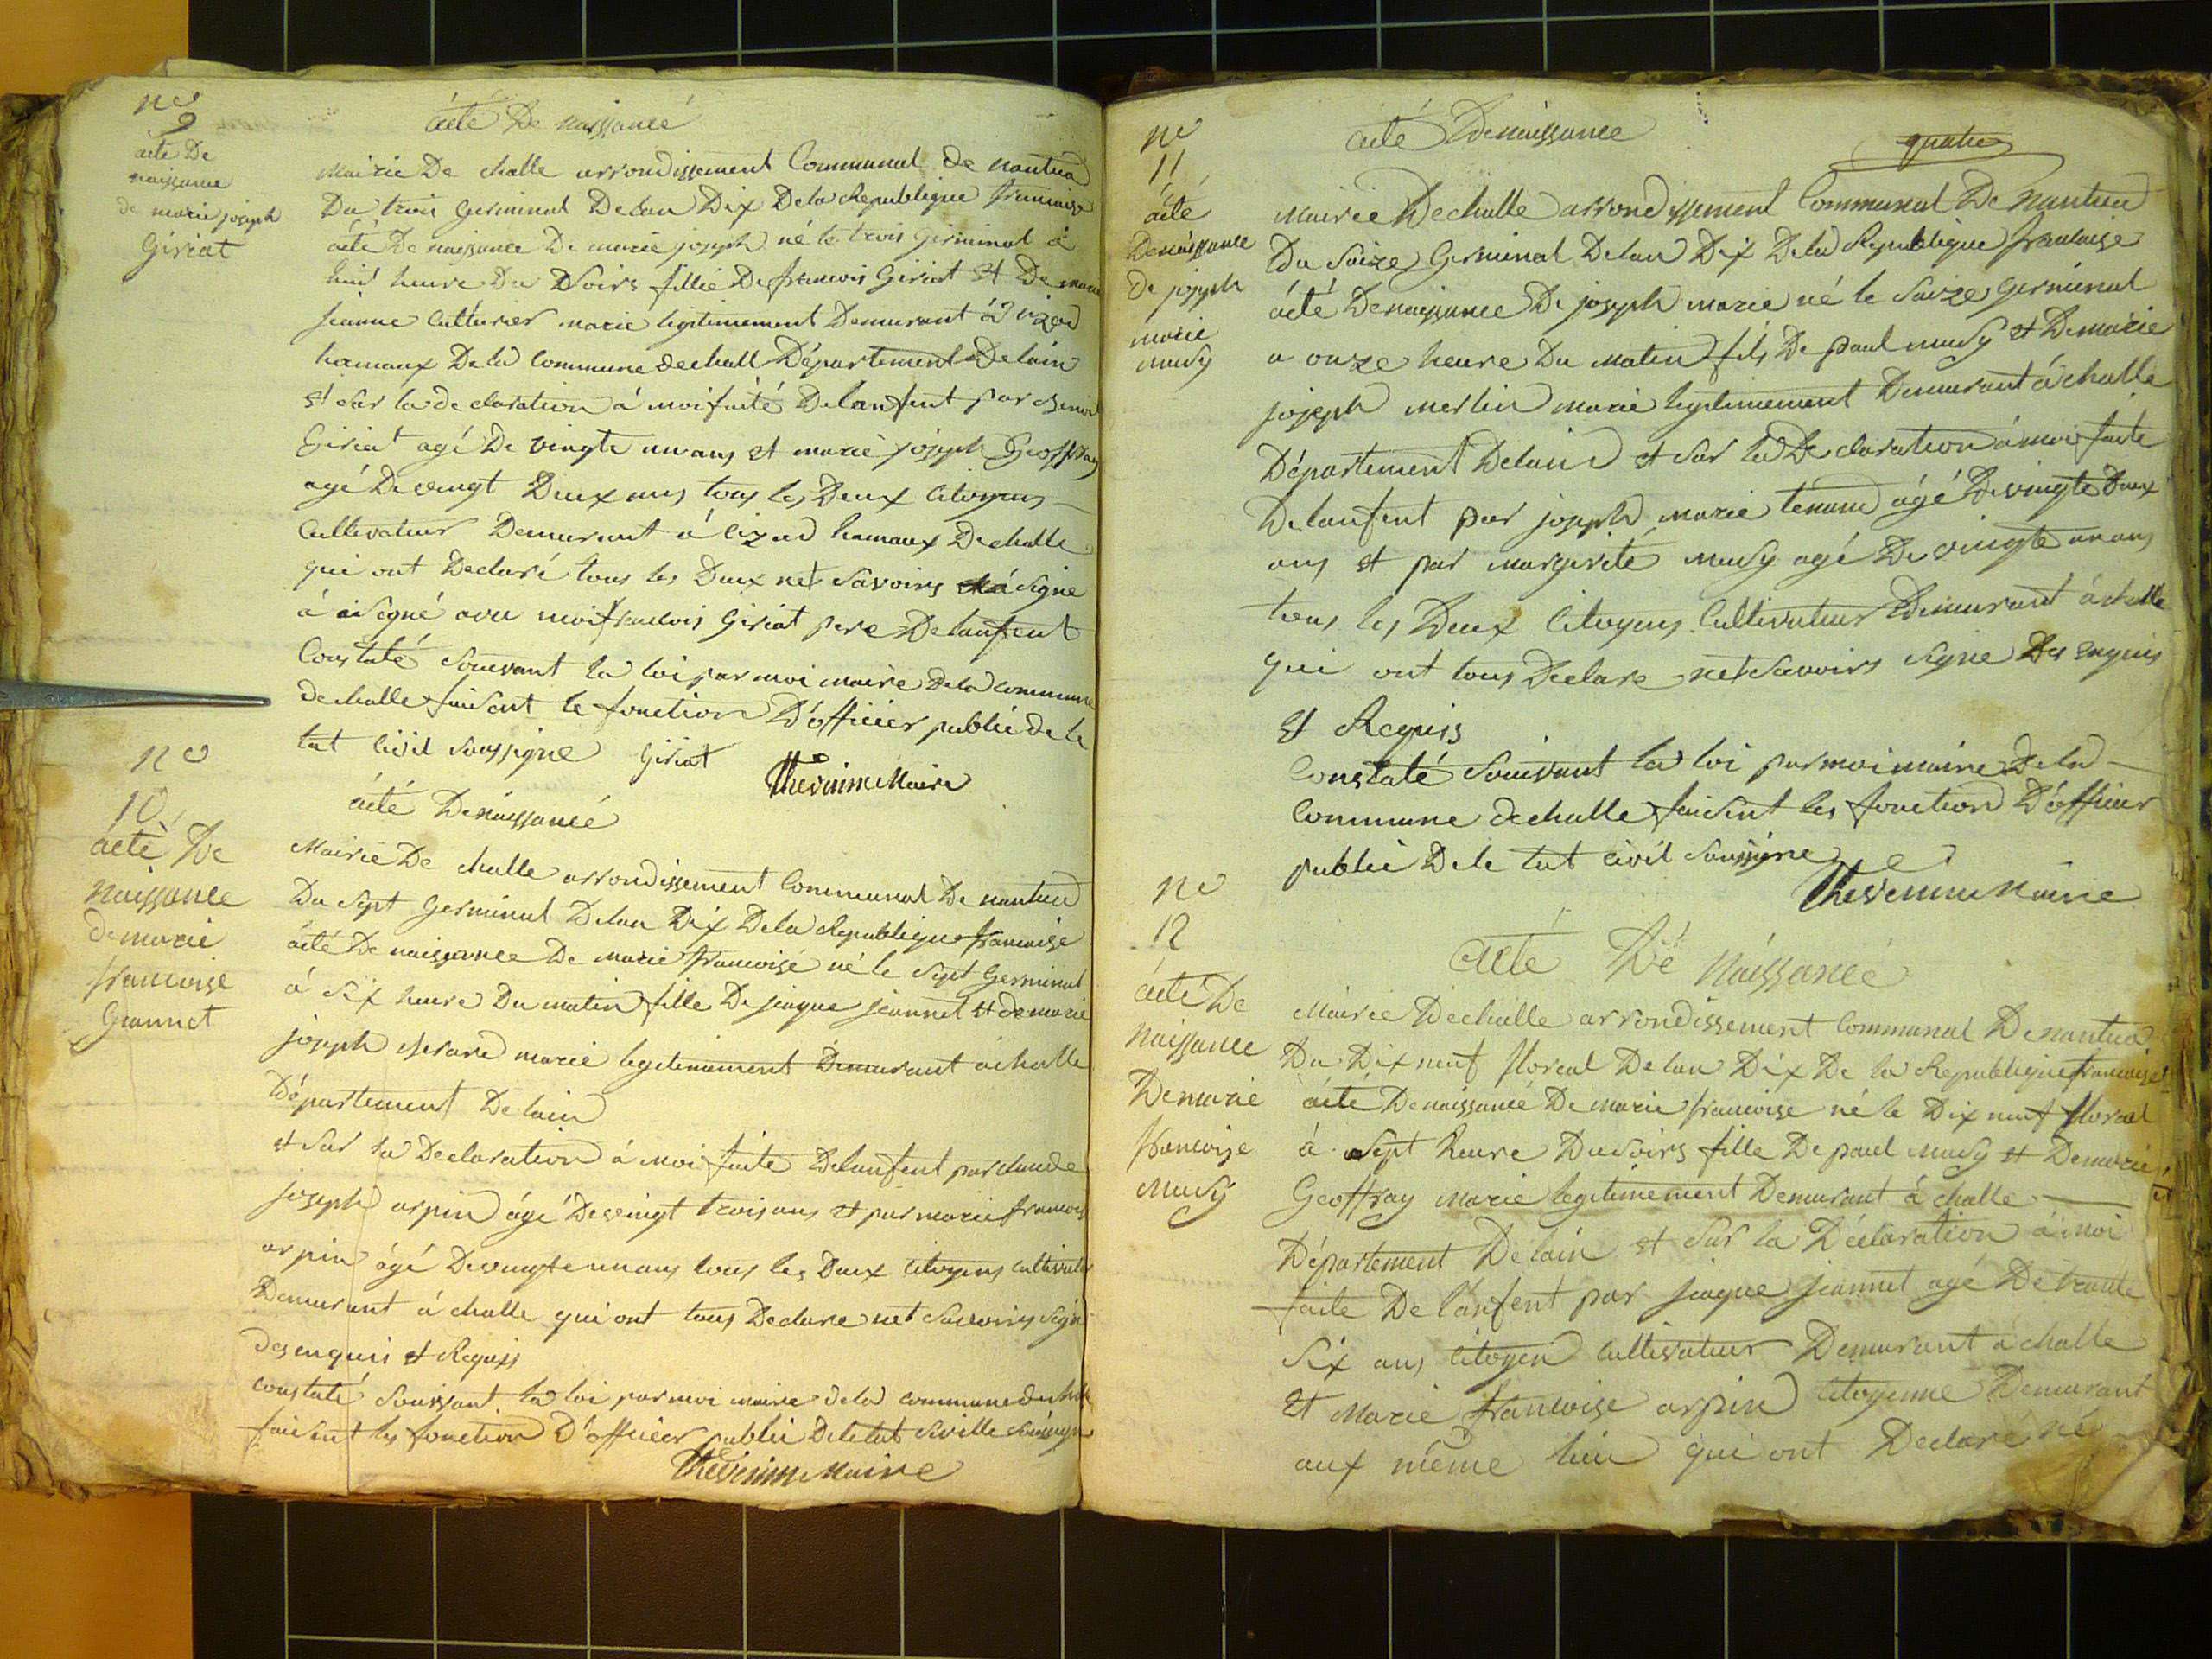 no
9
acte De
naissance
de marie joseph
Giriat
acté De naissancé
Mairie De challe arrondissement Communal de nantua
Du trois Germinal De lan Dix De la Republique francaise
acté De naissance De marie joseph né le trois Germinal à
huit heure Du Soirs fillie De francois Giriat et De marie
jeanne Culturier marie legitimement Demurant á
hamaux De la Commune de chall Département De lain
et Sur la de claration á moi faité De lanfent par
Giriat agé De vingte un ans et marie joseph Geoffray
agé De veingt Deux ans tous les Deux Citoyens
Cultivateur Demurant á hamaux De challe
qui ont Declaré tous les Deux net Savoirs Signe
á ai Signé avec moi francois Giriat pere De lanfent
Constaté Souivant la loi par moi maire De la Commune
de challe faisent le fonction D'officier public de le
tat Civil Soussigne Giriat
Thevenin Maire
no
10
acté De
naissance
de marie
francoise
Geannet
acté De naissancé
Mairie De challe arrondissement Communal De nantua
Du Sept Germinal De lan Dix De la Republique francaise
acté De naissance De marie francoise né le Sept Germinal
á Six heure Du matin fille De jaque jeannet et de marie
joseph marie legitimement Demurant á challe
Département De lain
et Sur la Declaration á moi faite De lanfent par claude
joseph arpin agé De veingt trois ans et par marie francois
arpin ágé De vingte un ans tous les Deux Citoyens Cultivater
Demurant á challe qui ont tous Declare net Savoirs Signe
des enquis et Requis
constaté Souivant la loi par moi maire de la commune de
faisent les fonction D'officier public De le tat Siville
Thevenin Maire
no
11
acté
De naissance
De joseph
marie
musy
acté De naissance
quatre
Mairie De challe arrondissement Communal De Nantua
Du Saize Germinal De lan Dix De la Republique francaise
acté De naissance De joseph marie né le Saize Germinal
a onze heure Du Matin fils De paul musy et De marie
joseph Merlin marie legitimement Demurant á challe
Département De lain et Sur la De claration á moi faite
De lanfent par joseph marie tenand agé De vingte Deux
ans et par margerite musy agé De vingte un ans
tous les Deux Citoyens Cultivateur Demurant á challe
qui ont tous Declare net Savoirs Signe Des enquis
et Requis
Constaté Souivant la loi par moi maire De la
Commune de challe faisent les fonction D'officier
public De le tat civil Soussigne
Thevenin Maire
no
12
acté De
Naissance
De marie
francoise
Musy
acté Dé Naissancé
Mairie De challe arrondissement Communal De nantua
Du Dix neuf floreal De lan Dix De la Republique francaise
acté De naissancé De marie francoise né le Dix neuf floreal
á Sept heure Du Soirs fille De paul Musy et De marie
Geoffray Marie legitimement Demurant á challe
Département De lain et Sur la Déclaration á moi
faite De lanfent par jaque jeannet agé De trante
Six ans Citoyen Cultivateur Demurant á challe
et Marie francoise arpin Citoyenne Demurant
aux même lieu qui ont Declaré né